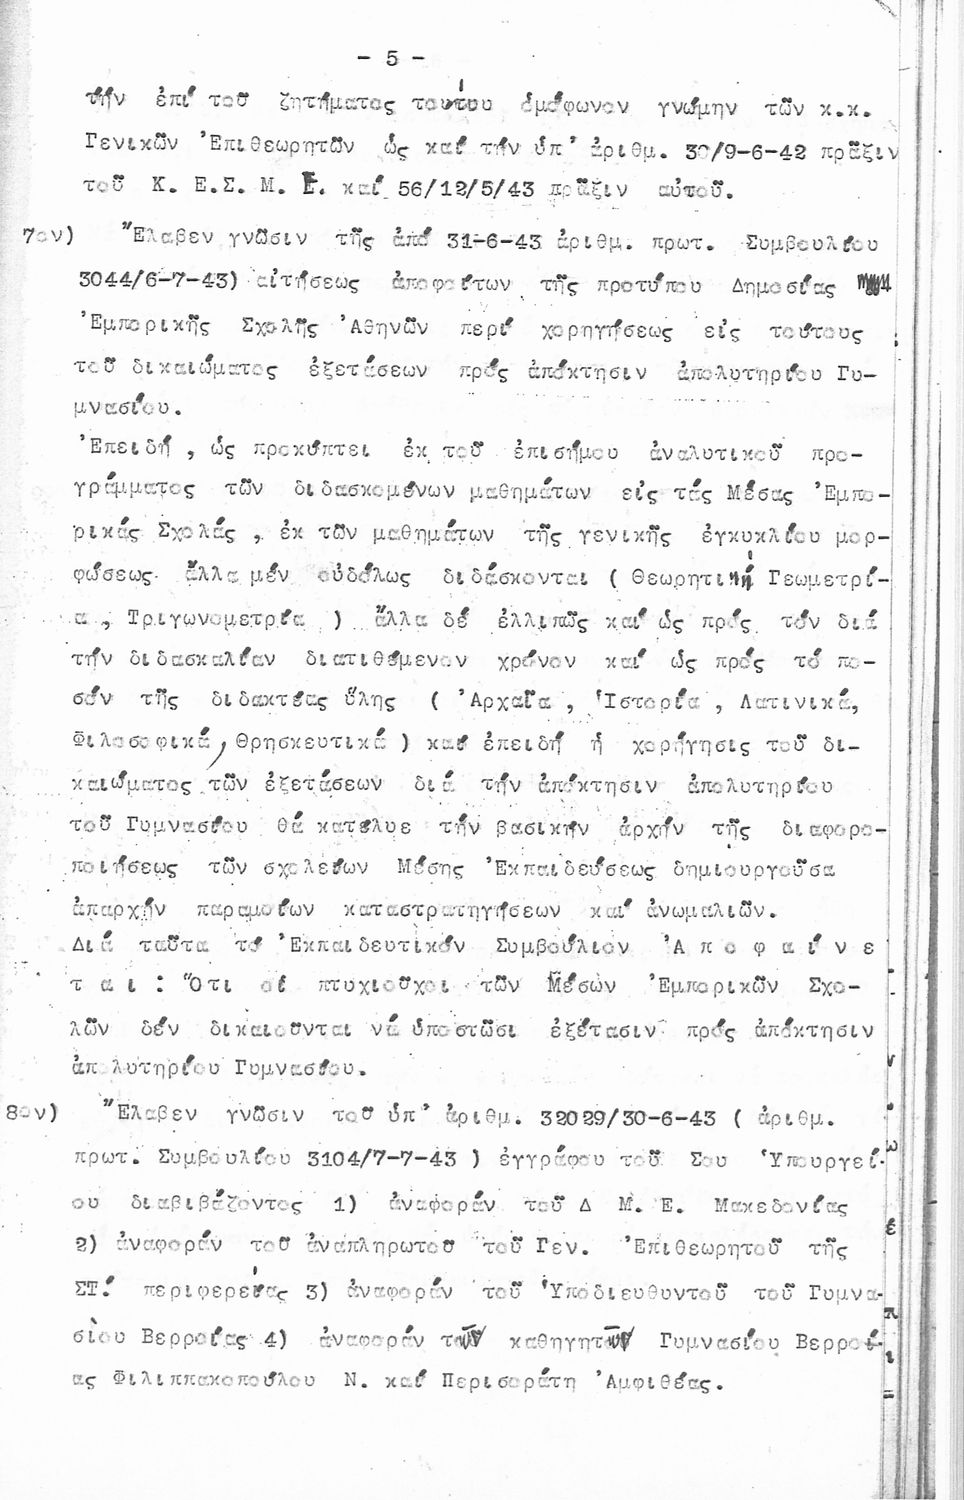 - 5 -
τήν ἐπί τοῦ ζητήματος τούτου ὁμόφωνον γνώμην τῶν κ.κ.
Γενικῶν Ἐπιθεωρητῶν ὡς καί τήν ὑπ' ἀριθμ. /9-6-42 πρᾶξιν
τοῦ Κ. Ε.Σ. Μ. Ε. καί 56/12/5/43 πρᾶξιν αὐτοῦ.
7ον) Ἔλαβεν γνῶσιν τῆς ἀπό 31-6-43 ἀριθμ. πρωτ. Συμβουλίου
3044/6-7-43) αἰτήσεως ἀποφοίτων τῆς προτύπου Δημοσίας
Ἐμπορικῆς Σχολῆς Ἀθηνῶν περί χορηγήσεως εἰς τούτους
τοῦ δικαιώματος ἐξετάσεων πρός ἀπόκτησιν ἀπολυτηρίου Γυ-
μνασίου.
Ἐπειδή , ὡς προκύπτει ἐκ τοῦ ἐπισήμου ἀναλυτικοῦ προ-
γράμματος τῶν διδασκομένων μαθημάτων εἰς τάς Μέσας Ἐμπο-
ρικάς Σχολάς , ἐκ τῶν μαθημάτων τῆς γενικῆς ἐγκυκλίου μορ-
φώσεως ἄλλα μέν οὐδόλως διδάσκονται ( Θεωρητική Γεωμετρί-
α , Τριγωνομετρία ) ἄλλα δέ ἐλλιπῶς καί ὡς πρός τόν διά
τήν διδασκαλίαν διατιθέμενον χρόνον καί ὡς πρός τό πο-
σόν τῆς διδακτέας ὕλης ( Ἀρχαῖα , Ἱστορία , Λατινικά,
Φιλοσοφικά, Θρησκευτικά ) καί ἐπειδή ἡ χορήγησις τοῦ δι-
καιώματος τῶν ἐξετάσεων διά τήν ἀπόκτησιν ἀπολυτηρίου
τοῦ Γυμνασίου θά κατέλυε τήν βασικήν ἀρχήν τῆς διαφορο-
ποιήσεως τῶν σχολείων Μέσης Ἐκπαιδεύσεως δημιουργοῦσα
ἀπαρχήν παρομοίων καταστρατηγήσεων καί ἀνωμαλιῶν.
Διά ταῦτα τό Ἐκπαιδευτικόν Συμβούλιον Ἀ π ο φ α ί ν ε
τ α ι : Ὅτι οἱ πτυχιοῦχοι τῶν Μέσων Ἐμπορικῶν Σχο-
λῶν δέν δικαιοῦνται νά ὑποστῶσι ἐξέτασιν πρός ἀπόκτησιν
ἀπολυτηρίου Γυμνασίου.
8ον) Ἔλαβεν γνῶσιν τοῦ ὑπ' ἀριθμ. 32029/30-6-43 ( ἀριθμ.
πρωτ. Συμβουλίου 3104/7-7-43 ) ἐγγράφου τοῦ Σου Ὑπουργεί-
ου διαβιβάζοντος 1) ἀναφοράν τοῦ Δ Μ. Ε. Μακεδονίας
2) ἀναφοράν τοῦ ἀναπληρωτοῦ τοῦ Γεν. Ἐπιθεωρητοῦ τῆς
ΣΤ΄ περιφερείας 3) ἀναφοράν τοῦ Ὑποδιευθυντοῦ τοῦ Γυμνα-
σίου Βερροίας 4) ἀναφοράν τῶν καθηγητῶν Γυμνασίου Βερροί-
ας Φιλιππακοπούλου Ν. καί Περισοράτη Ἀμφιθέας.